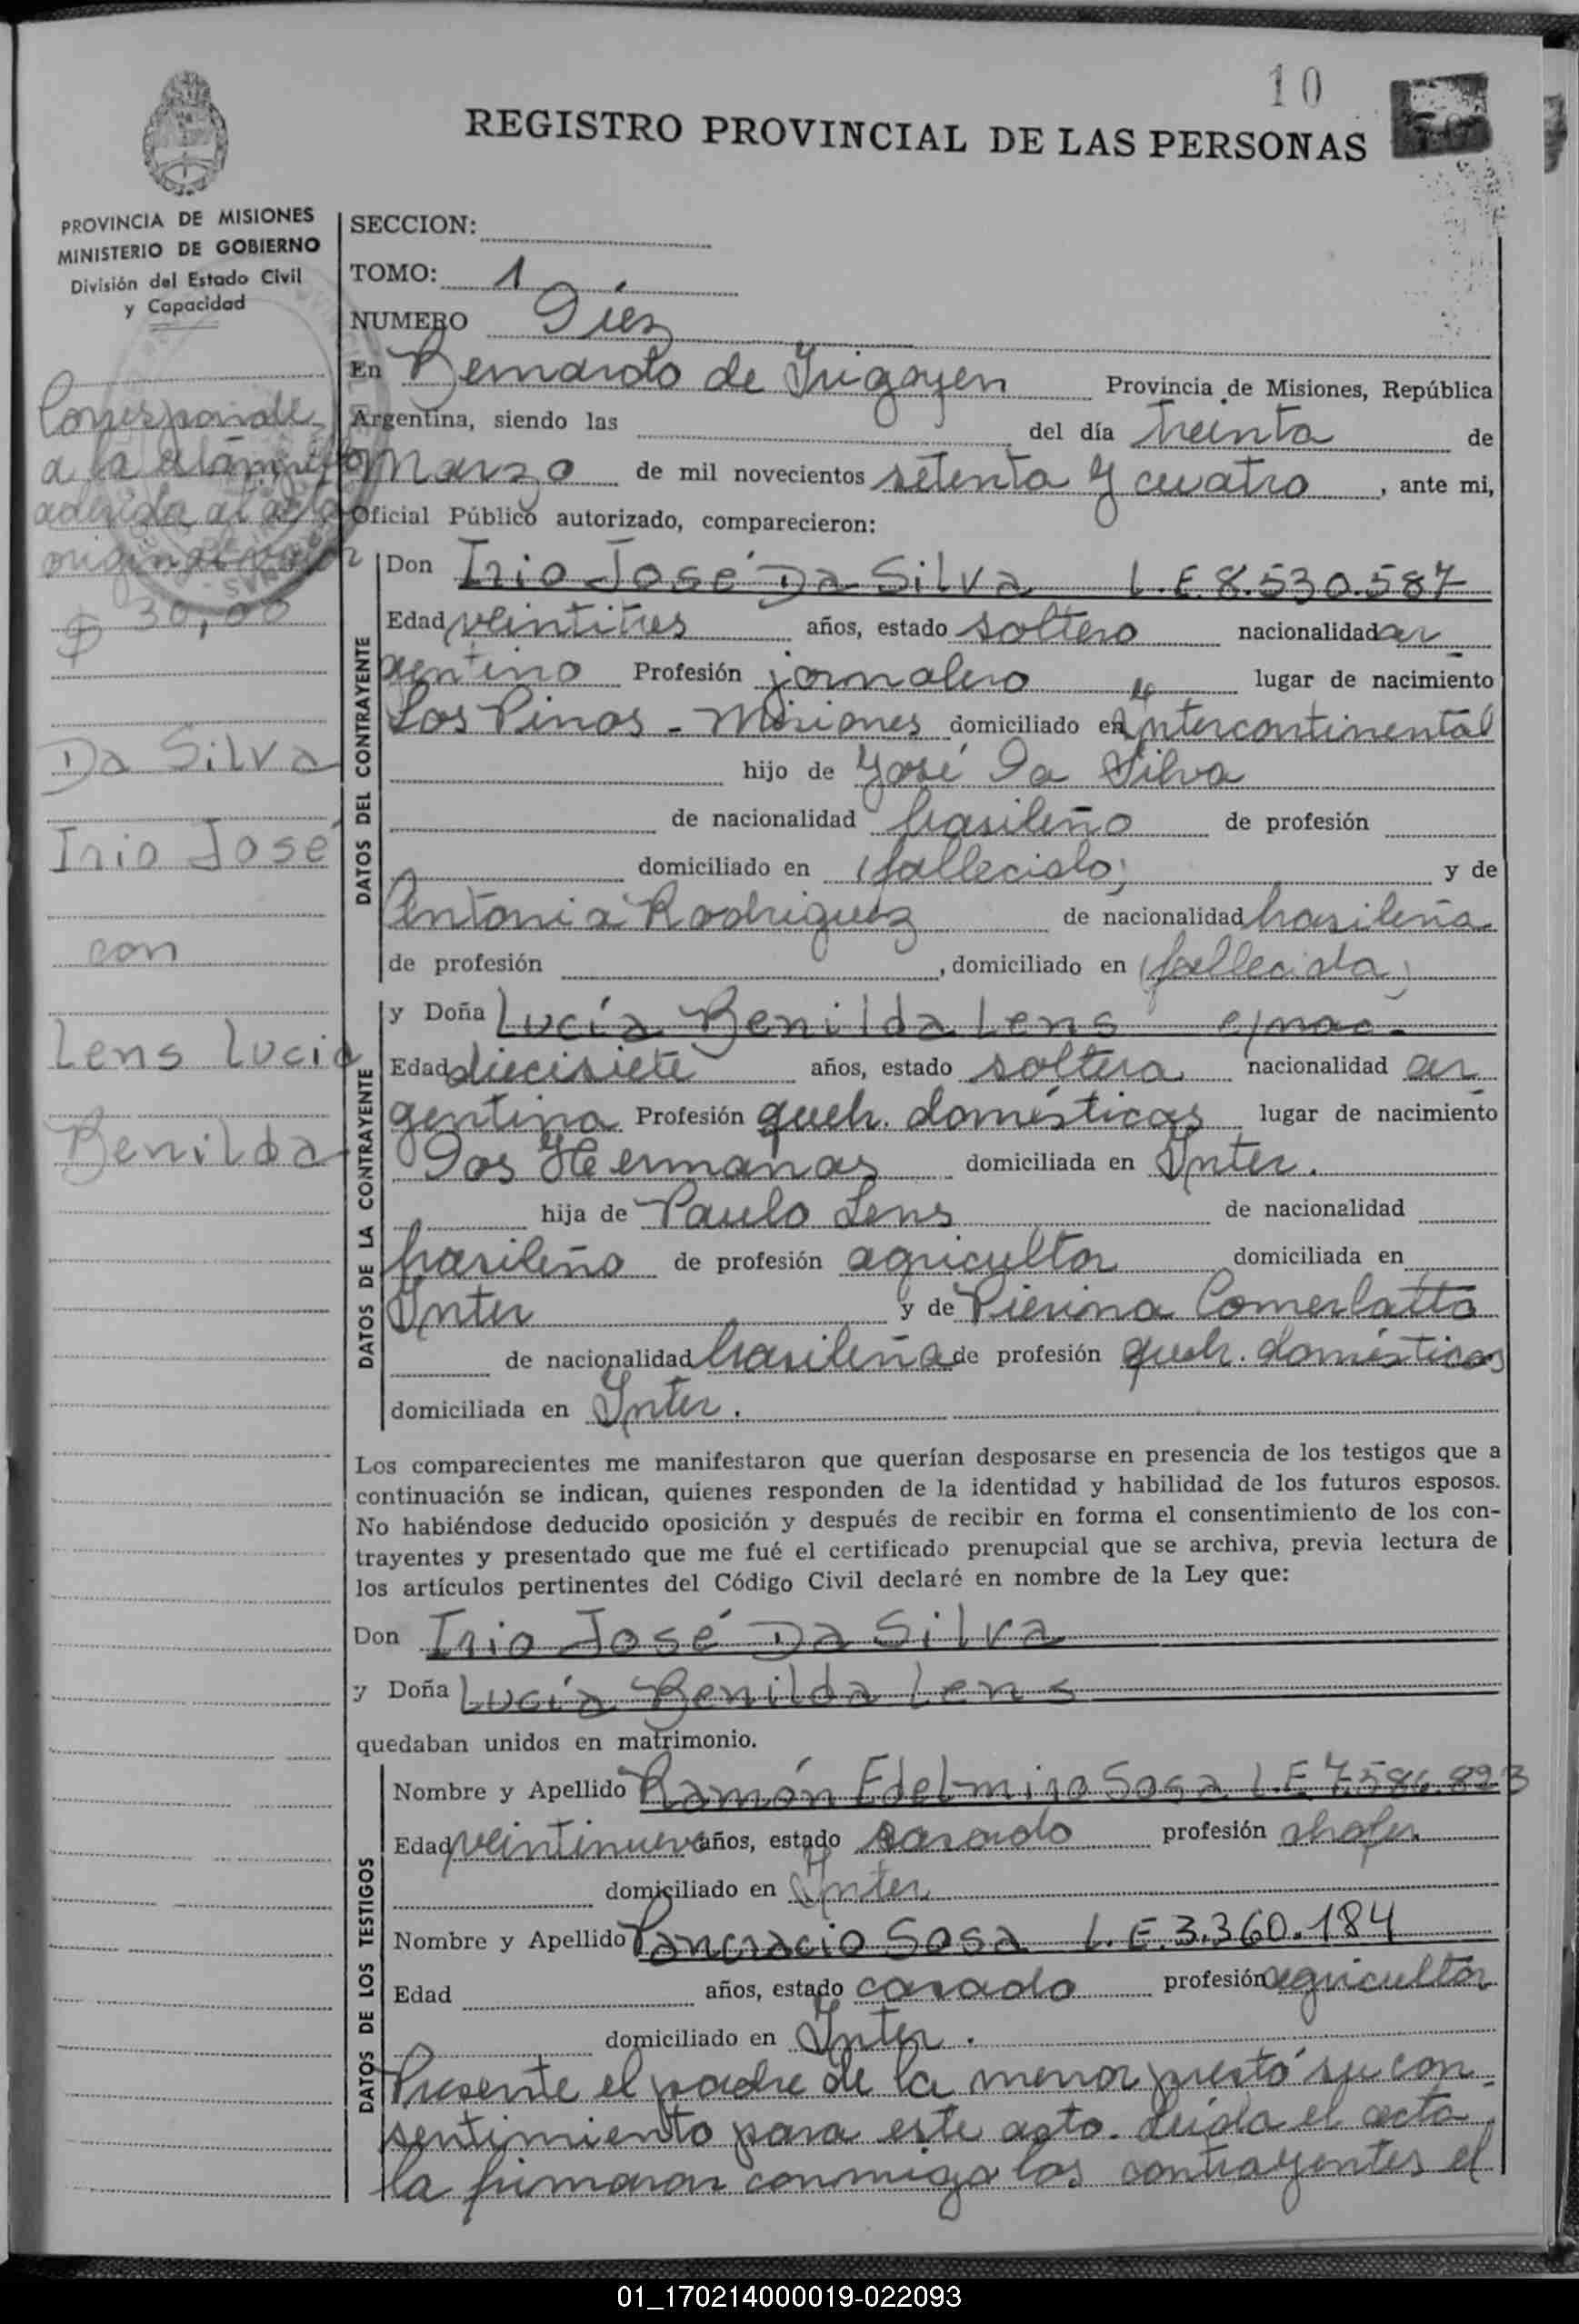 10
REGISTRO PROVINCIAL DE LAS PERSONAS
PROVINCIA DE MISIONES
MINISTERIO DE GOBIERNO
División del Estado Civil
y Capacidad
Corresponde
a la estampilla
adherida al acta
original valor
$ 30,00
Da Silva
Irio José
con
Lens Lucía
Benilda
SECCION:
TOMO: 1
NUMERO Diez
En Bernardo de Irigoyen Provincia de Misiones, República
Argentina, siendo las del día treinta de
Marzo de mil novecientos setenta y cuatro, ante mi,
Oficial Público autorizado, comparecieron:
DATOS DEL CONTRAYENTE
Don Irio José Da Silva L.E 8.530.587
Edad veintitres años, estado soltero nacionalidad ar
gentino Profesión jornalero lugar de nacimiento
Los Pinos - Misiones domiciliado en Intercontinental
hijo de José Da Silva
de nacionalidad brasileño de profesión
domiciliado en (fallecido) y de
Antonia Rodriguez de nacionalidad brasileña
de profesión , domiciliado en (fallecida)
DATOS DE LA CONTRAYENTE
y Doña Lucía Benilda Lens c/nac.
Edad diecisiete años, estado soltera nacionalidad ar
gentina Profesión queh. domésticos lugar de nacimiento
Dos Hermanas domiciliada en Inter.
hija de Paulo Lens de nacionalidad
brasileño de profesión agricultor domiciliada en
Inter y de Pierina Comerlatto
de nacionalidad brasileña de profesión queh. domésticos
domiciliada en Inter.
Los comparecientes me manifestaron que querían desposarse en presencia de los testigos que a
continuación se indican, quienes responden de la identidad y habilidad de los futuros esposos.
No habiéndose deducido oposición y después de recibir en forma el consentimiento de los con-
trayentes y presentado que me fué el certificado prenupcial que se archiva, previa lectura de
los artículos pertinentes del Código Civil declaré en nombre de la Ley que:
Don Irio José Da Silva
y Doña Lucía Benilda Lens
quedaban unidos en matrimonio.
DATOS DE LOS TESTIGOS
Nombre y Apellido Ramón Edelmiro Sosa L.E 7.584.893
Edad veintinueve años, estado casado profesión chofer
domiciliado en Inter
Nombre y Apellido Pancracio Sosa L.E.3.360.184
Edad años, estado casado profesión agricultor
domiciliado en Inter.
Presente el padre de la menor prestó su con-
sentimiento para este acto. Leída el acta
la firmaron conmigo los contrayentes el
01_170214000019-022093